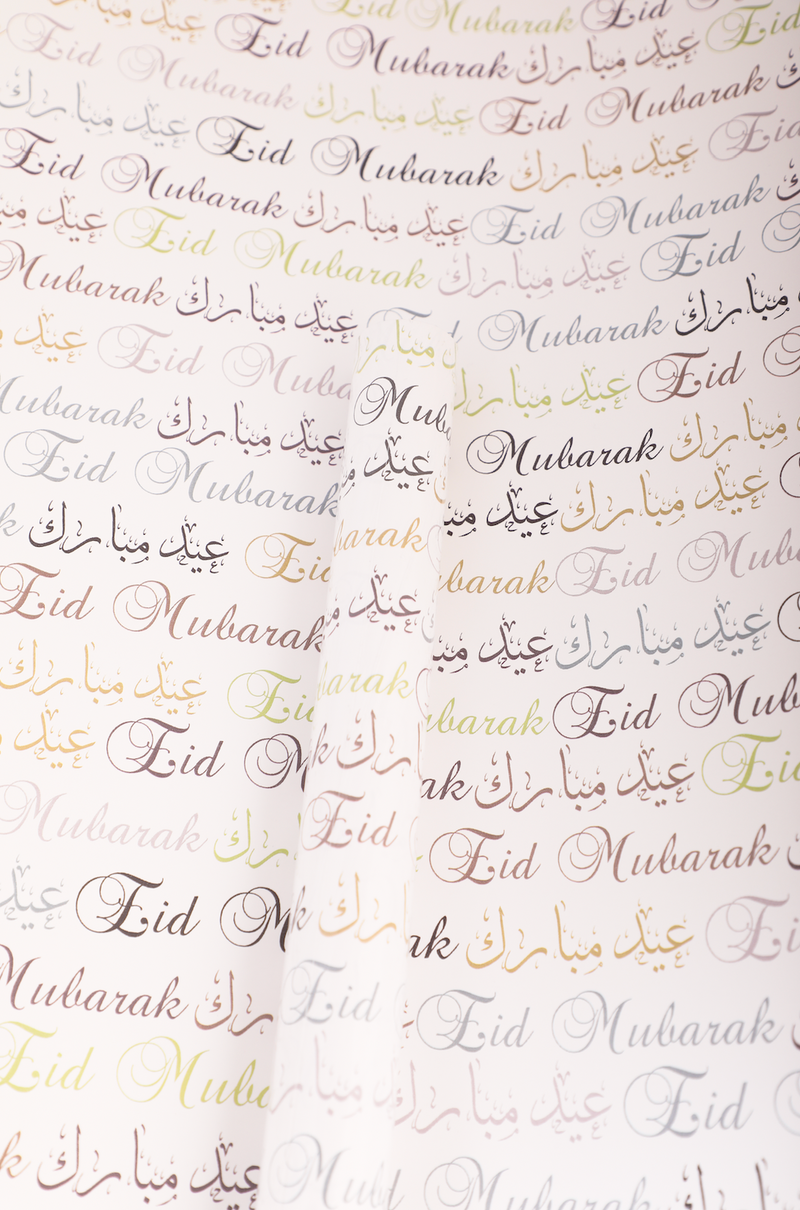 عيد مبارك Eid Mubarak Eid
Eid Mubarak عيد مبارك Eid
Eid Mubarak عيد مبارك Eid Mubarak
عيد مبارك Eid Mubarak عيد مبارك Eid
Eid Mubarak عيد مبارك Eid Mubarak
عيد Eid Mubarak عيد مبارك Eid
Mubarak عيد مبارك Mubarak مبارك
عيد Eid عيد مبارك Eid
Mubarak عيد مبارك Mubarak مبارك
Eid Mubarak عيد عيد عيد مبارك
عيد مبارك Eid Mubarak Eid
Eid Mubarak عيد عيد عيد مبارك
عيد مبارك Eid Eid
عيد Eid عيد مبارك Eid
Mubarak Eid Eid Mubarak
عيد Eid عيد مبارك Eid
Mubarak Eid Eid Mubarak
Eid عيد مبارك Eid
عيد مبارك Mubarak